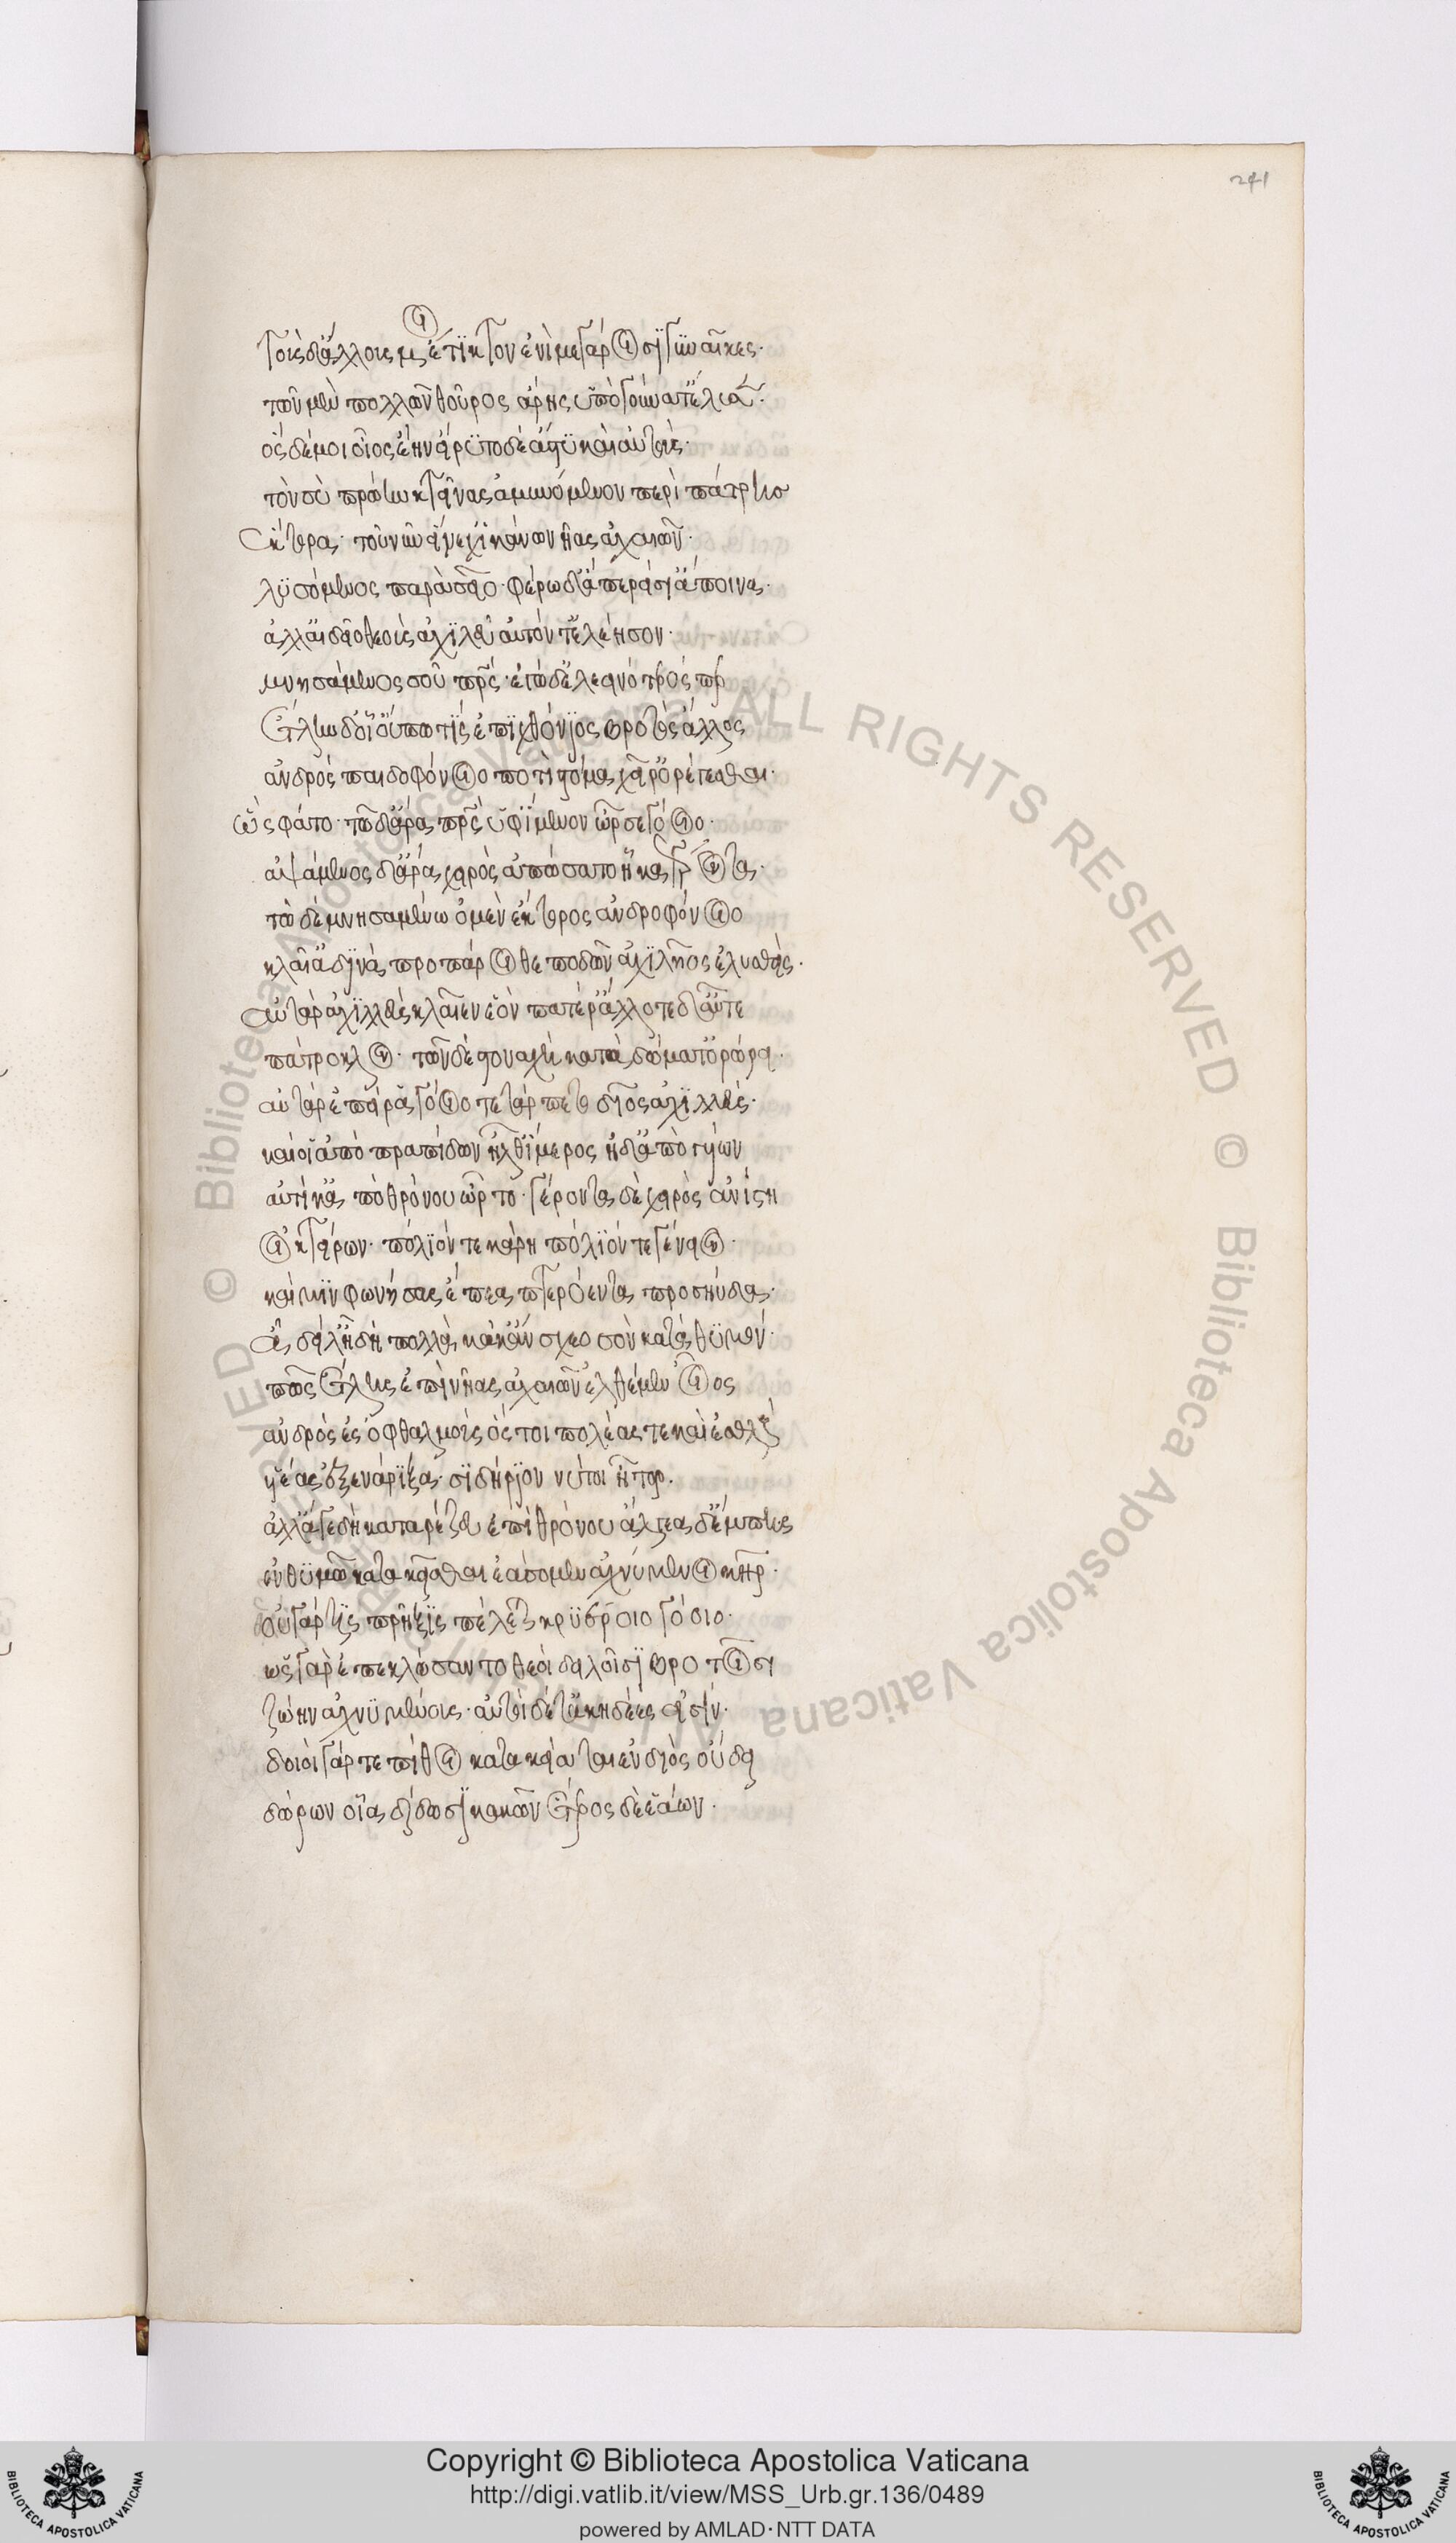 241
τοὺς δ' ἄλλους μοι ἔτικτον ἐνὶ μεγάροισι γυναῖκες·
τῶν μὲν πολλῶν θοῦρος ἄρης ὑπὸ γούνατ' ἔλυσεν·
ὃς δέ μοι οἶος ἔην εἴρυτο δὲ ἄστυ καὶ αὐτούς·
τὸν σὺ πρώην κτεῖνας ἀμυνόμενον περὶ πάτρης
ἕκτορα· τοῦ νῦν εἵνεχ' ἱκάνω νῆας ἀχαιῶν·
λυσόμενος παρὰ σεῖο· φέρω δ' ἀπερείσι' ἄποινα·
ἀλλ' αἰδεῖο θεοὺς ἀχιλεῦ αὐτόν τ' ἐλέησον·
μνησάμενος σοῦ πρς· ἐγὼ δ' ἐλεεινότερός περ
ἔτλην δ' οἷ' οὔπω τὶς ἐπιχθόνιος βροτὸς ἄλλος
ἀνδρὸς παιδοφόνοιο ποτὶ στόμα χεῖρ' ὀρέγεσθαι·
ὣς φάτο· τῶ δ' ἄρα πρς ὑφ' ἵμερον ὦρσε γόοιο·
ἁψάμενος δ' ἄρα χειρὸς ἀπώσατο ἦκα γέροντα·
τὼ δὲ μνησαμένω ὁ μὲν ἕκτορος ἀνδροφόνοιο
κλαῖ' ἀδινὰ προπάροιθε ποδῶν ἀχιλῆος ἐλυσθείς·
αὐτὰρ ἀχιλλεὺς κλαῖεν ἑὸν πατέρ' ἄλλοτε δ' αὖτε
πάτροκλον· τῶν δὲ στοναχὴ κατὰ δώματ' ὀρώρει·
αὐτὰρ ἐπεί ῥα γόοιο τετάρπετο δῖος ἀχιλλεύς·
καί οἱ ἀπὸ πραπίδων ἦλθ' ἵμερος ἠδ' ἀπὸ γυίων
αὐτίκ' ἀπὸ θρόνου ὦρτο· γέροντα δὲ χειρὸς ἀνίστη
οἰκτείρων· πολιόν τε κάρη πολιόν τε γένειον·
καί μιν φωνήσας ἔπεα πτερόεντα προσηύδα·
ἆ δείλ' ἦ δὴ πολλὰ κάκ' ἄνσχεο σὸν κατὰ θυμόν·
πῶς ἔτλης ἐπὶ νῆας ἀχαιῶν ἐλθέμεν οἶος
ἀνδρὸς ἐς ὀφθαλμοὺς ὅς τοι πολέας τε καὶ ἐσθλοὺς
υἱέας ἐξενάριξα· σιδήρειόν νύ τοι ἦτορ.
ἀλλ' ἄγε δὴ κατ' ἄρ' ἕζευ ἐπὶ θρόνου ἄλγεα δ' ἔμπης
ἐν θυμῶ κατακεῖσθαι ἐάσομεν ἀχνύμενοι κῆρ·
οὐ γάρ τις πρῆξις πέλεται κρυεροῖο γόοιο·
ὣς γὰρ ἐπεκλώσαντο θεοὶ δειλοῖσι βροτοῖσι
ζώειν ἀχνυμένοις· αὐτοὶ δέ τ' ἀκηδέες εἰσίν·
δοιοὶ γάρ τε πίθοι κατακείαται ἐν διὸς οὔδει
δώρων οἷα δίδωσι κακῶν ἕτερος δὲ ἐάων·
Copyright © Biblioteca Apostolica Vaticana
http://digi.vatlib.it/view/MSS_Urb.gr.136/0489
powered by AMLAD·NTT DATA